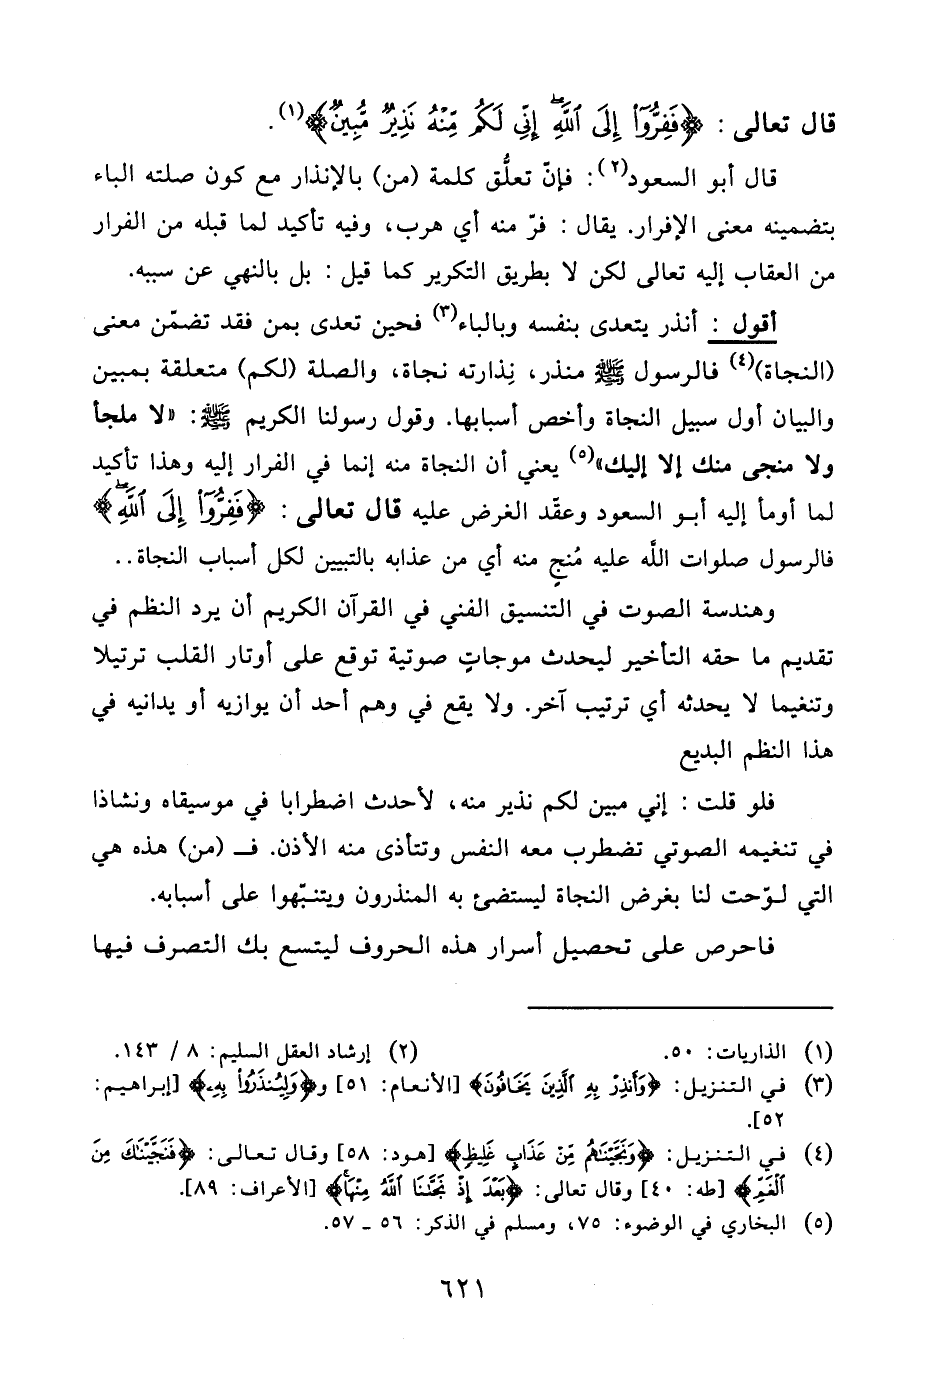 قال تعالى : ﴿فَفِرُّوٓاْ إِلَى ٱللَّهِۖ إِنِّي لَكُم مِّنۡهُ نَذِيرٞ مُّبِينٞ﴾(١).
قال أبو السعود(٢): فإنّ تعلُّق كلمة (من) بالإنذار مع كون صلته الباء
بتضمينه معنى الإفرار. يقال : فرّ منه أي هرب، وفيه تأكيد لما قبله من الفرار
من العقاب إليه تعالى لكن لا بطريق التكرير كما قيل : بل بالنهي عن سببه.
أقول : أنذر يتعدى بنفسه وبالباء(٣) فحين تعدى بمن فقد تضمّن معنى
(النجاة)(٤) فالرسول ﷺ منذر، نِذارته نجاة، والصلة (لكم) متعلقة بمبين
والبيان أول سبيل النجاة وأخص أسبابها. وقول رسولنا الكريم ﷺ: «لا ملجأ
ولا منجى منك إلا إليك»(٥) يعني أن النجاة منه إنما في الفرار إليه وهذا تأكيد
لما أومأ إليه أبو السعود وعقَد الغرض عليه قال تعالى : ﴿فَفِرُّوٓاْ إِلَى ٱللَّهِۖ﴾
فالرسول صلوات اللَّه عليه مُنجٍ منه أي من عذابه بالتبيين لكل أسباب النجاة..
وهندسة الصوت في التنسيق الفني في القرآن الكريم أن يرد النظم في
تقديم ما حقه التأخير ليحدث موجاتٍ صوتية توقع على أوتار القلب ترتيلا
وتنغيما لا يحدثه أي ترتيب آخر. ولا يقع في وهم أحد أن يوازيه أو يدانيه في
هذا النظم البديع
فلو قلت : إني مبين لكم نذير منه، لأحدث اضطرابا في موسيقاه ونشاذا
في تنغيمه الصوتي تضطرب معه النفس وتتأذى منه الأذن. فـ (من) هذه هي
التي لوّحت لنا بغرض النجاة ليستضئ به المنذرون ويتنبّهوا على أسبابه.
فاحرص على تحصيل أسرار هذه الحروف ليتسع بك التصرف فيها
(١) الذاريات: ٥٠. (٢) إرشاد العقل السليم: ٨ / ١٤٣.
(٣) في التنزيل: ﴿وَأَنذِرۡ بِهِ ٱلَّذِينَ يَخَافُونَ﴾ [الأنعام: ٥١] و﴿وَلِيُنذَرُواْ بِهِۦ﴾ [إبراهيم:
٥٢].
(٤) في التنزيل: ﴿وَنَجَّيۡنَٰهُم مِّنۡ عَذَابٍ غَلِيظٖ﴾ [هود: ٥٨] وقال تعالى: ﴿فَنَجَّيۡنَٰكَ مِنَ
ٱلۡغَمِّ﴾ [طه: ٤٠] وقال تعالى: ﴿بَعۡدَ إِذۡ نَجَّىٰنَا ٱللَّهُ مِنۡهَاۚ﴾ [الأعراف: ٨٩].
(٥) البخاري في الوضوء: ٧٥، ومسلم في الذكر: ٥٦ ـ ٥٧.
٦٢١